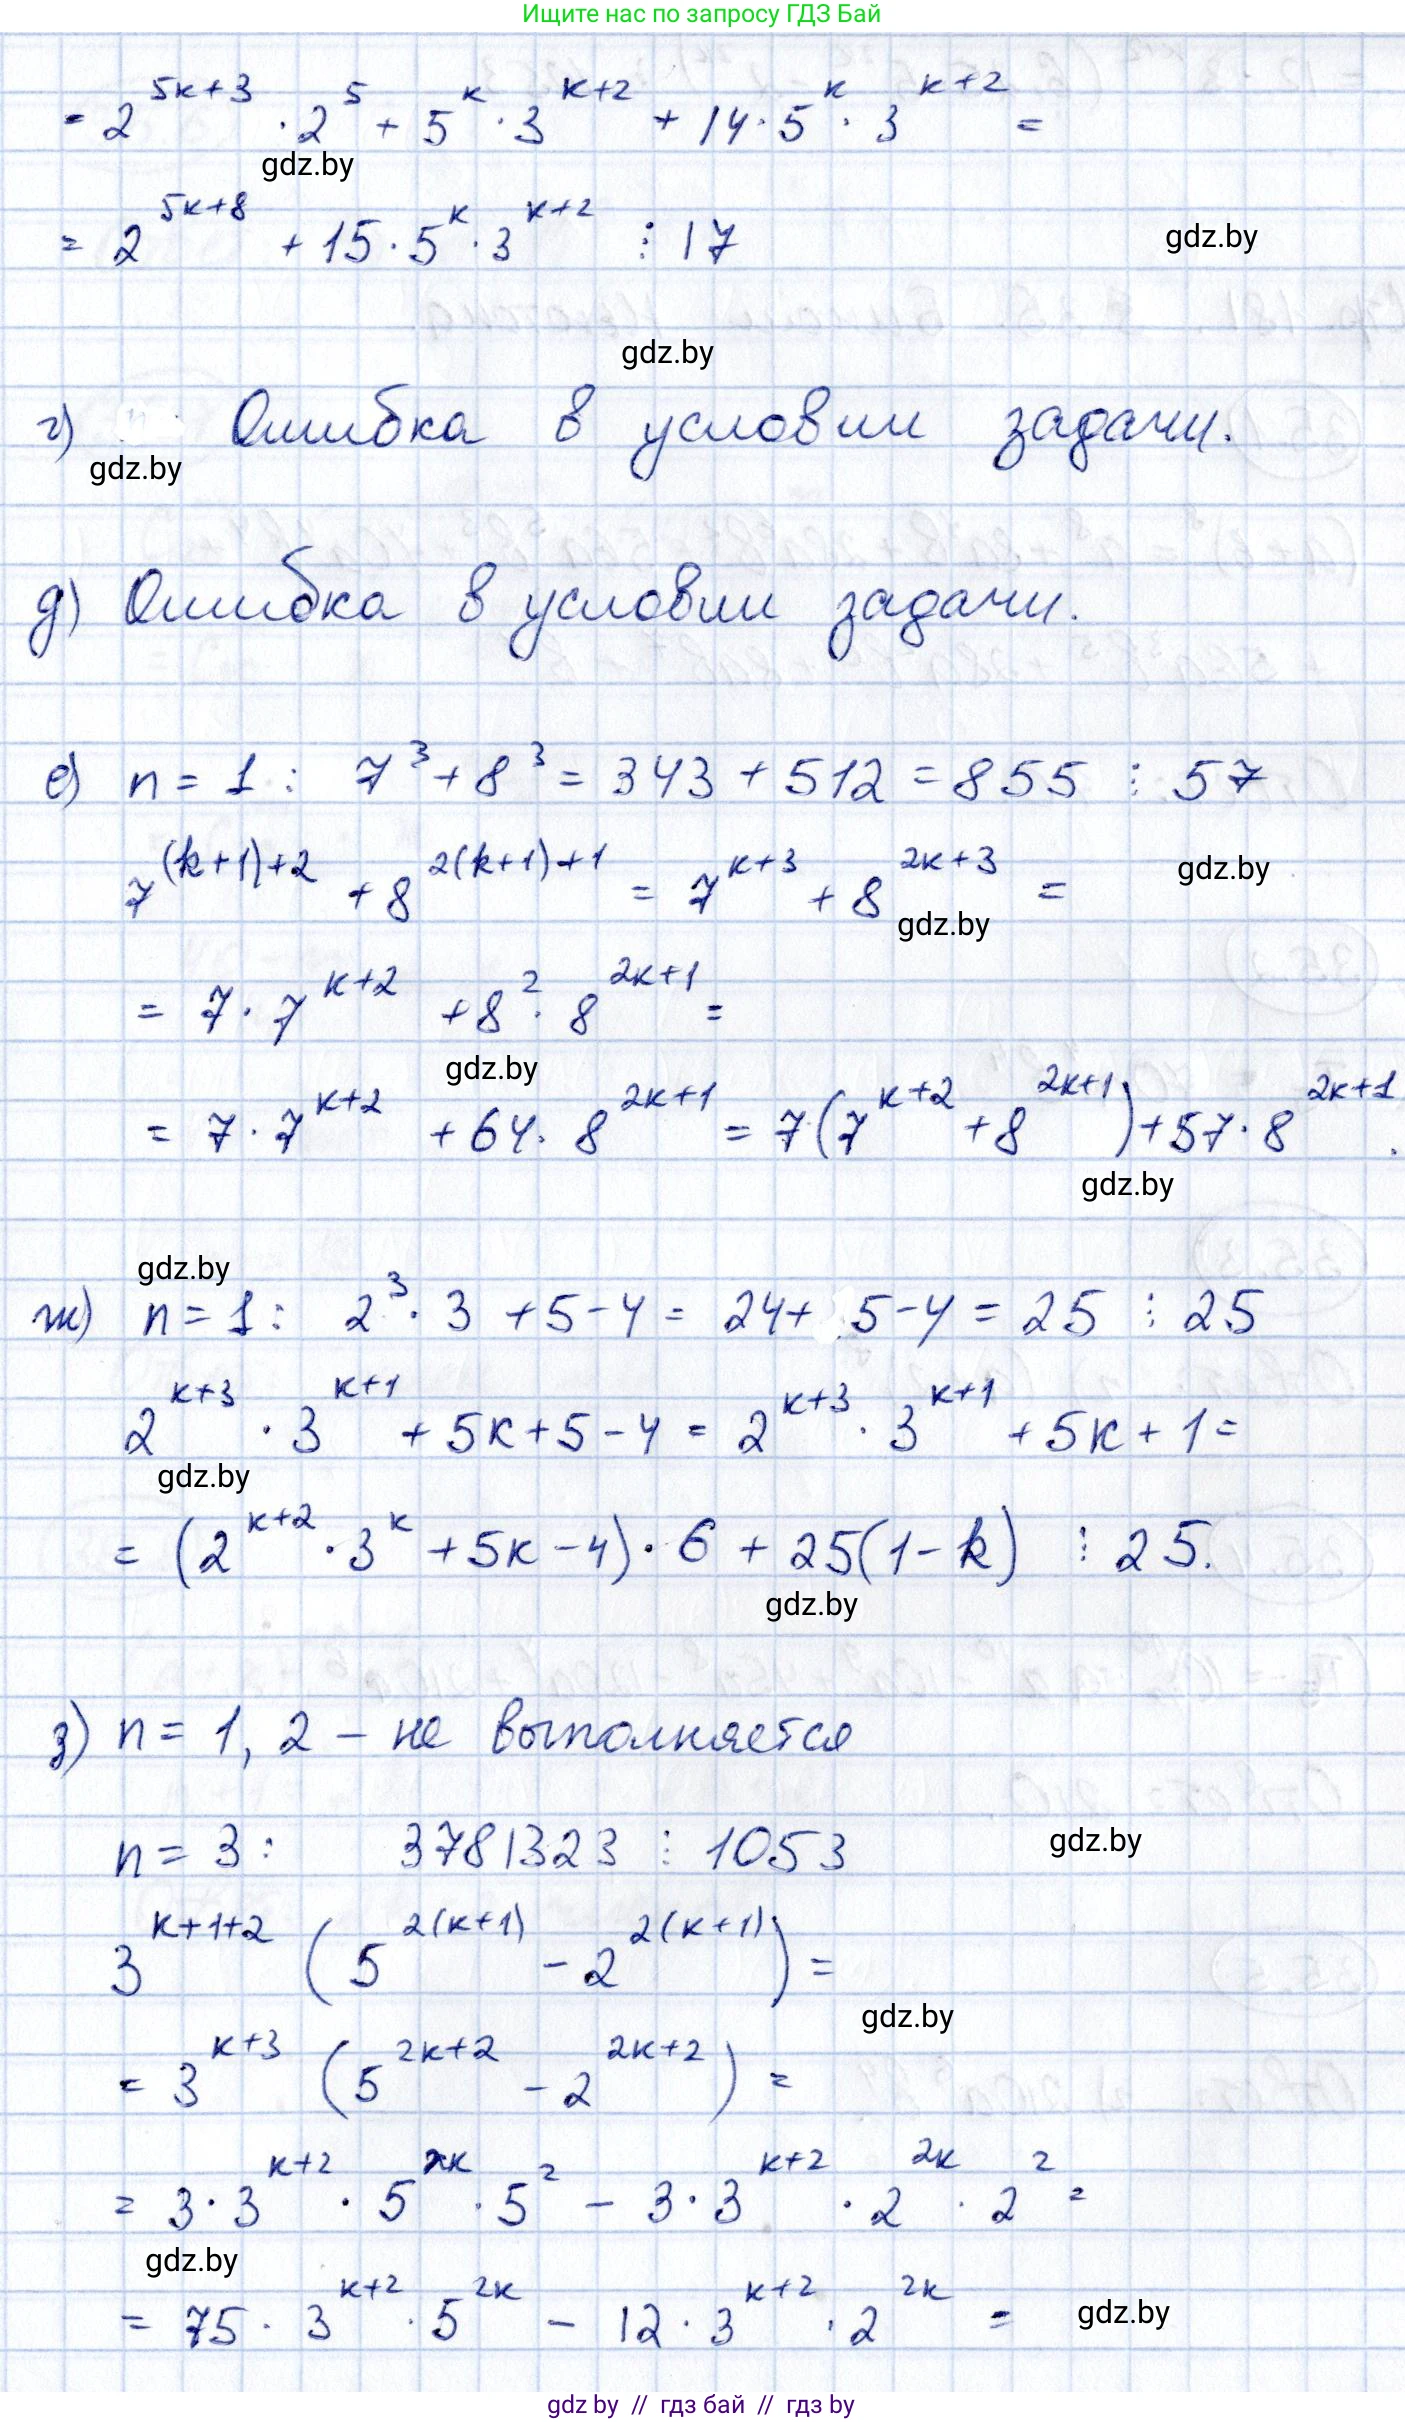 Ищите нас по запросу ГДЗ Бай
= 2^{5к+3} · 2^5 + 5^к · 3^{к+2} + 14 · 5^к · 3^{к+2} =
gdz.by
= 2^{5к+8} + 15 · 5^к · 3^{к+2} ⋮ 17
gdz.by
gdz.by
г) Ошибка в условии задачи.
gdz.by
д) Ошибка в условии задачи.
е) n = 1 : 7^3 + 8^3 = 343 + 512 = 855 ⋮ 57
7^{(k+1)+2} + 8^{2(k+1)+1} = 7^{к+3} + 8^{2к+3} =
gdz.by
gdz.by
= 7 · 7^{к+2} + 8^2 · 8^{2к+1} =
gdz.by
= 7 · 7^{к+2} + 64 · 8^{2к+1} = 7(7^{к+2} + 8^{2к+1}) + 57 · 8^{2к+1}.
gdz.by
gdz.by
ж) n = 1 : 2^3 · 3 + 5 - 4 = 24 + 5 - 4 = 25 ⋮ 25
2^{к+3} · 3^{к+1} + 5к + 5 - 4 = 2^{к+3} · 3^{к+1} + 5к + 1 =
gdz.by
= (2^{к+2} · 3^к + 5к - 4) · 6 + 25(1 - k) ⋮ 25.
gdz.by
з) n = 1, 2 - не выполняется
n = 3 : 3781323 ⋮ 1053
gdz.by
3^{к+1+2} (5^{2(к+1)} - 2^{2(к+1)}) =
gdz.by
= 3^{к+3} (5^{2к+2} - 2^{2к+2}) =
= 3 · 3^{к+2} · 5^{2к} · 5^2 - 3 · 3^{к+2} · 2^{2к} · 2^2 =
gdz.by
= 75 · 3^{к+2} · 5^{2к} - 12 · 3^{к+2} · 2^{2к} =
gdz.by
gdz by // гдз бай // гдз by